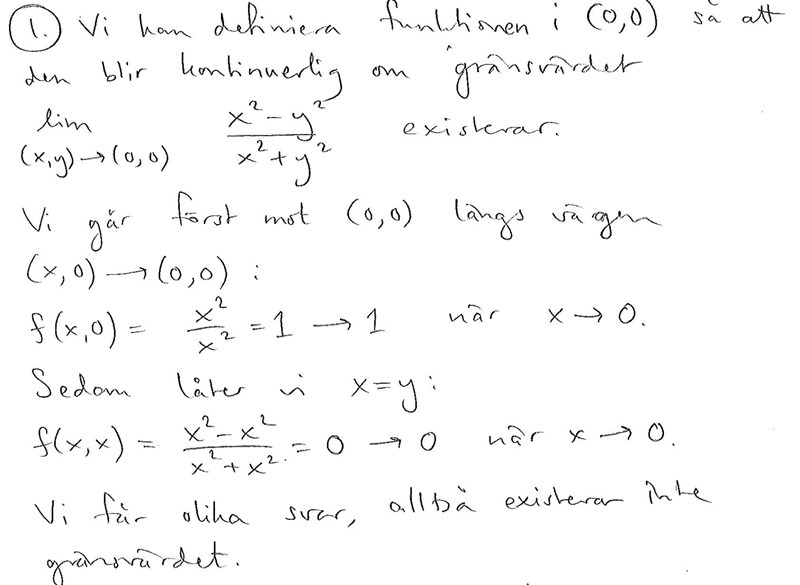 1. Vi kan definiera funktionen i (0,0) så att
den blir kontinuerlig om gränsvärdet
lim (x,y)→(0,0) (x²-y²)/(x²+y²) existerar.
Vi går först mot (0,0) längs vägen
(x,0) → (0,0) :
f(x,0) = x²/x² = 1 → 1 när x → 0.
Sedan låter vi x=y:
f(x,x) = (x²-x²)/(x²+x²) = 0 → 0 när x → 0.
Vi får olika svar, alltså existerar inte
gränsvärdet.